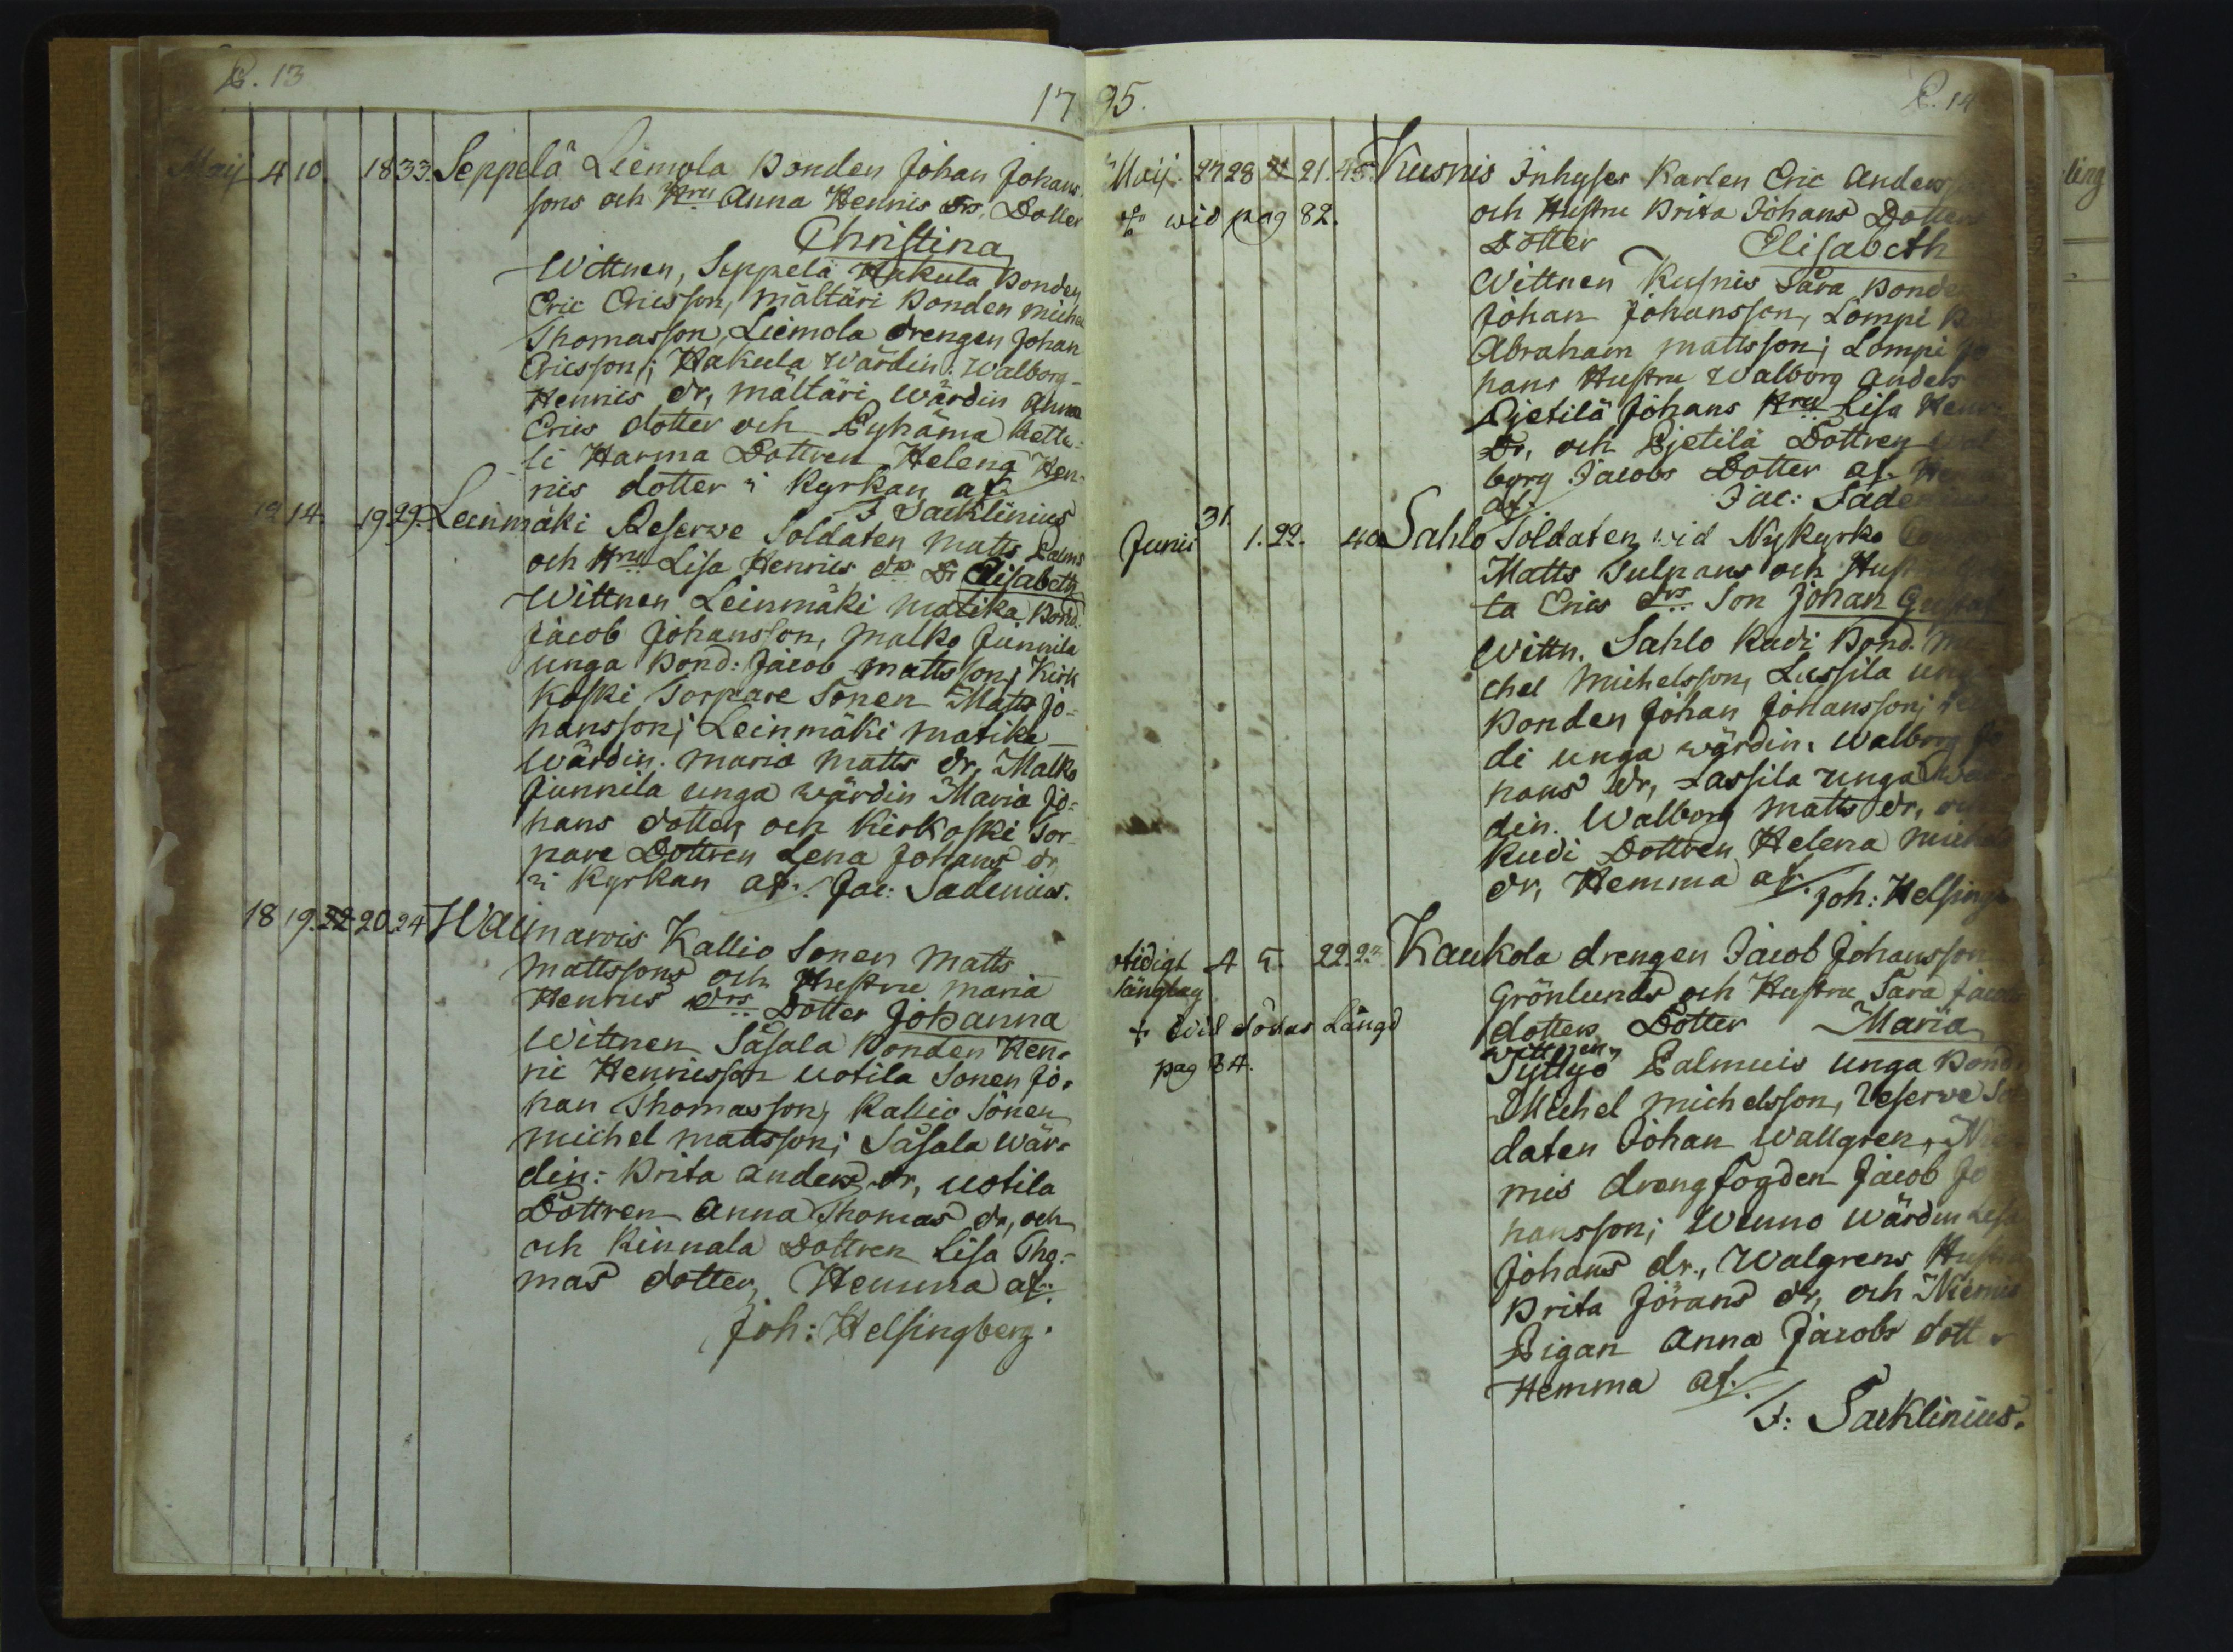 P. 13
1795.
Maij 4 10. 18 33. Seppelä Liemola Bonden Johan Johans
sons och Hru Anna Henris drs, Dotter
Christina
Wittnen, Seppelä Hakula Bonden
Eric Ericsson, mältäri Bonden Michel
Thomasson, Liemola drengen Johan
Ericsson; Hakula Wärdin: Walborg
Henris dr, mältäri wärdin Anna
Erics dotter och Pyhäma Kettu-
li Harma Dottren Helena Hen-
ris dotter i Kyrkan af
F Sacklinius
12 14. 19. 29. Leinmäki Reserve Soldaten Matts
och Hru Lisa Henris drs Dr Elisabeth
Wittnen Leinmäki Matika Bond.
Jacob Johansson, Malko Junnila
unga Bond: Jacob Mattsson; Kirk
koski Torpare Sonen Matts Jo-
hansson; Leinmäki Matika
Wärdin. Maria Matts dr, Malko
Junnila unga wärdin Maria Jo-
hans dotter och Kirkoski Tor-
pare Dottren Lena Johans dr
i Kyrkan af. Jac: Sadenius.
18 19. 22 20. 24 Waimarvis Kallio Sonen Matts
Mattssons och Hustru Maria
Henris drs Dotter Johanna
Wittnen Såsala Bonden Hen-
ric Henricsson Uotila Sonen Jo-
han Thomasson, Kallio Sonen
Michel Mattsson; Såsala Wär-
din: Brita Anders dr, Uotila
Dottren Anna Thomas dr, och
och Kinnala Dottren Lisa Tho-
mas dotter, Hemma af:
Joh: Helsingberg.
P. 14
Maij. 27 28 21. 45. Kusnis Inhyses Karlen Eric Anders
+ wid pag 82.
och Hustru Brita Johans Dotters
Dotter Elisabeth
Wittnen Kusnis Sara Bonde
Johan Johansson, Lompi
Abraham Mattsson; Lompi Jo
hans Hustru Walborg Anders
Pjetilä Johans Hru Lisa Henr
Dr, och Pjetilä Dottren Wal
borg Jacobs Dotter af.
af. Jac: Sadenius
Junii 31. 1. 22. 40 Sahlo Soldaten wid Nykyrko
Matts Tulpans och Hust
ta Erics drs Son Johan Gustaf
Wittn. Sahlo Kudi Bond. M
chel Michelsson, Lassila unga
Bonden Johan Johansson;
di unga wärdin. Walborg Jo
hans dr, Lassila unga wär
din. Walborg Matts dr,
Kudi Dottren Helena Michels
dr, Hemma af:
Joh: Helsing
otidigt 4 5. 22. Kaukola drengen Jacob Johansson
Sänglag
Grönlunds och Hustru Sara Jacobs
+ wid dödas Längd
pag 84.
dotters Dotter Maria
Wittnen
Tyllyö Palmuis unga Bond.
Michel Michelsson, Reserve Sol
daten Johan Wallgren,
mis drengfogden Jacob Jo
hansson; Wenno Wärdin Lisa
Johans dr., Walgrens Hustru
Brita Jörans dr, och Niemis
Pigan Anna Jacobs dotter
Hemma af.
F: Sacklinius.
ling